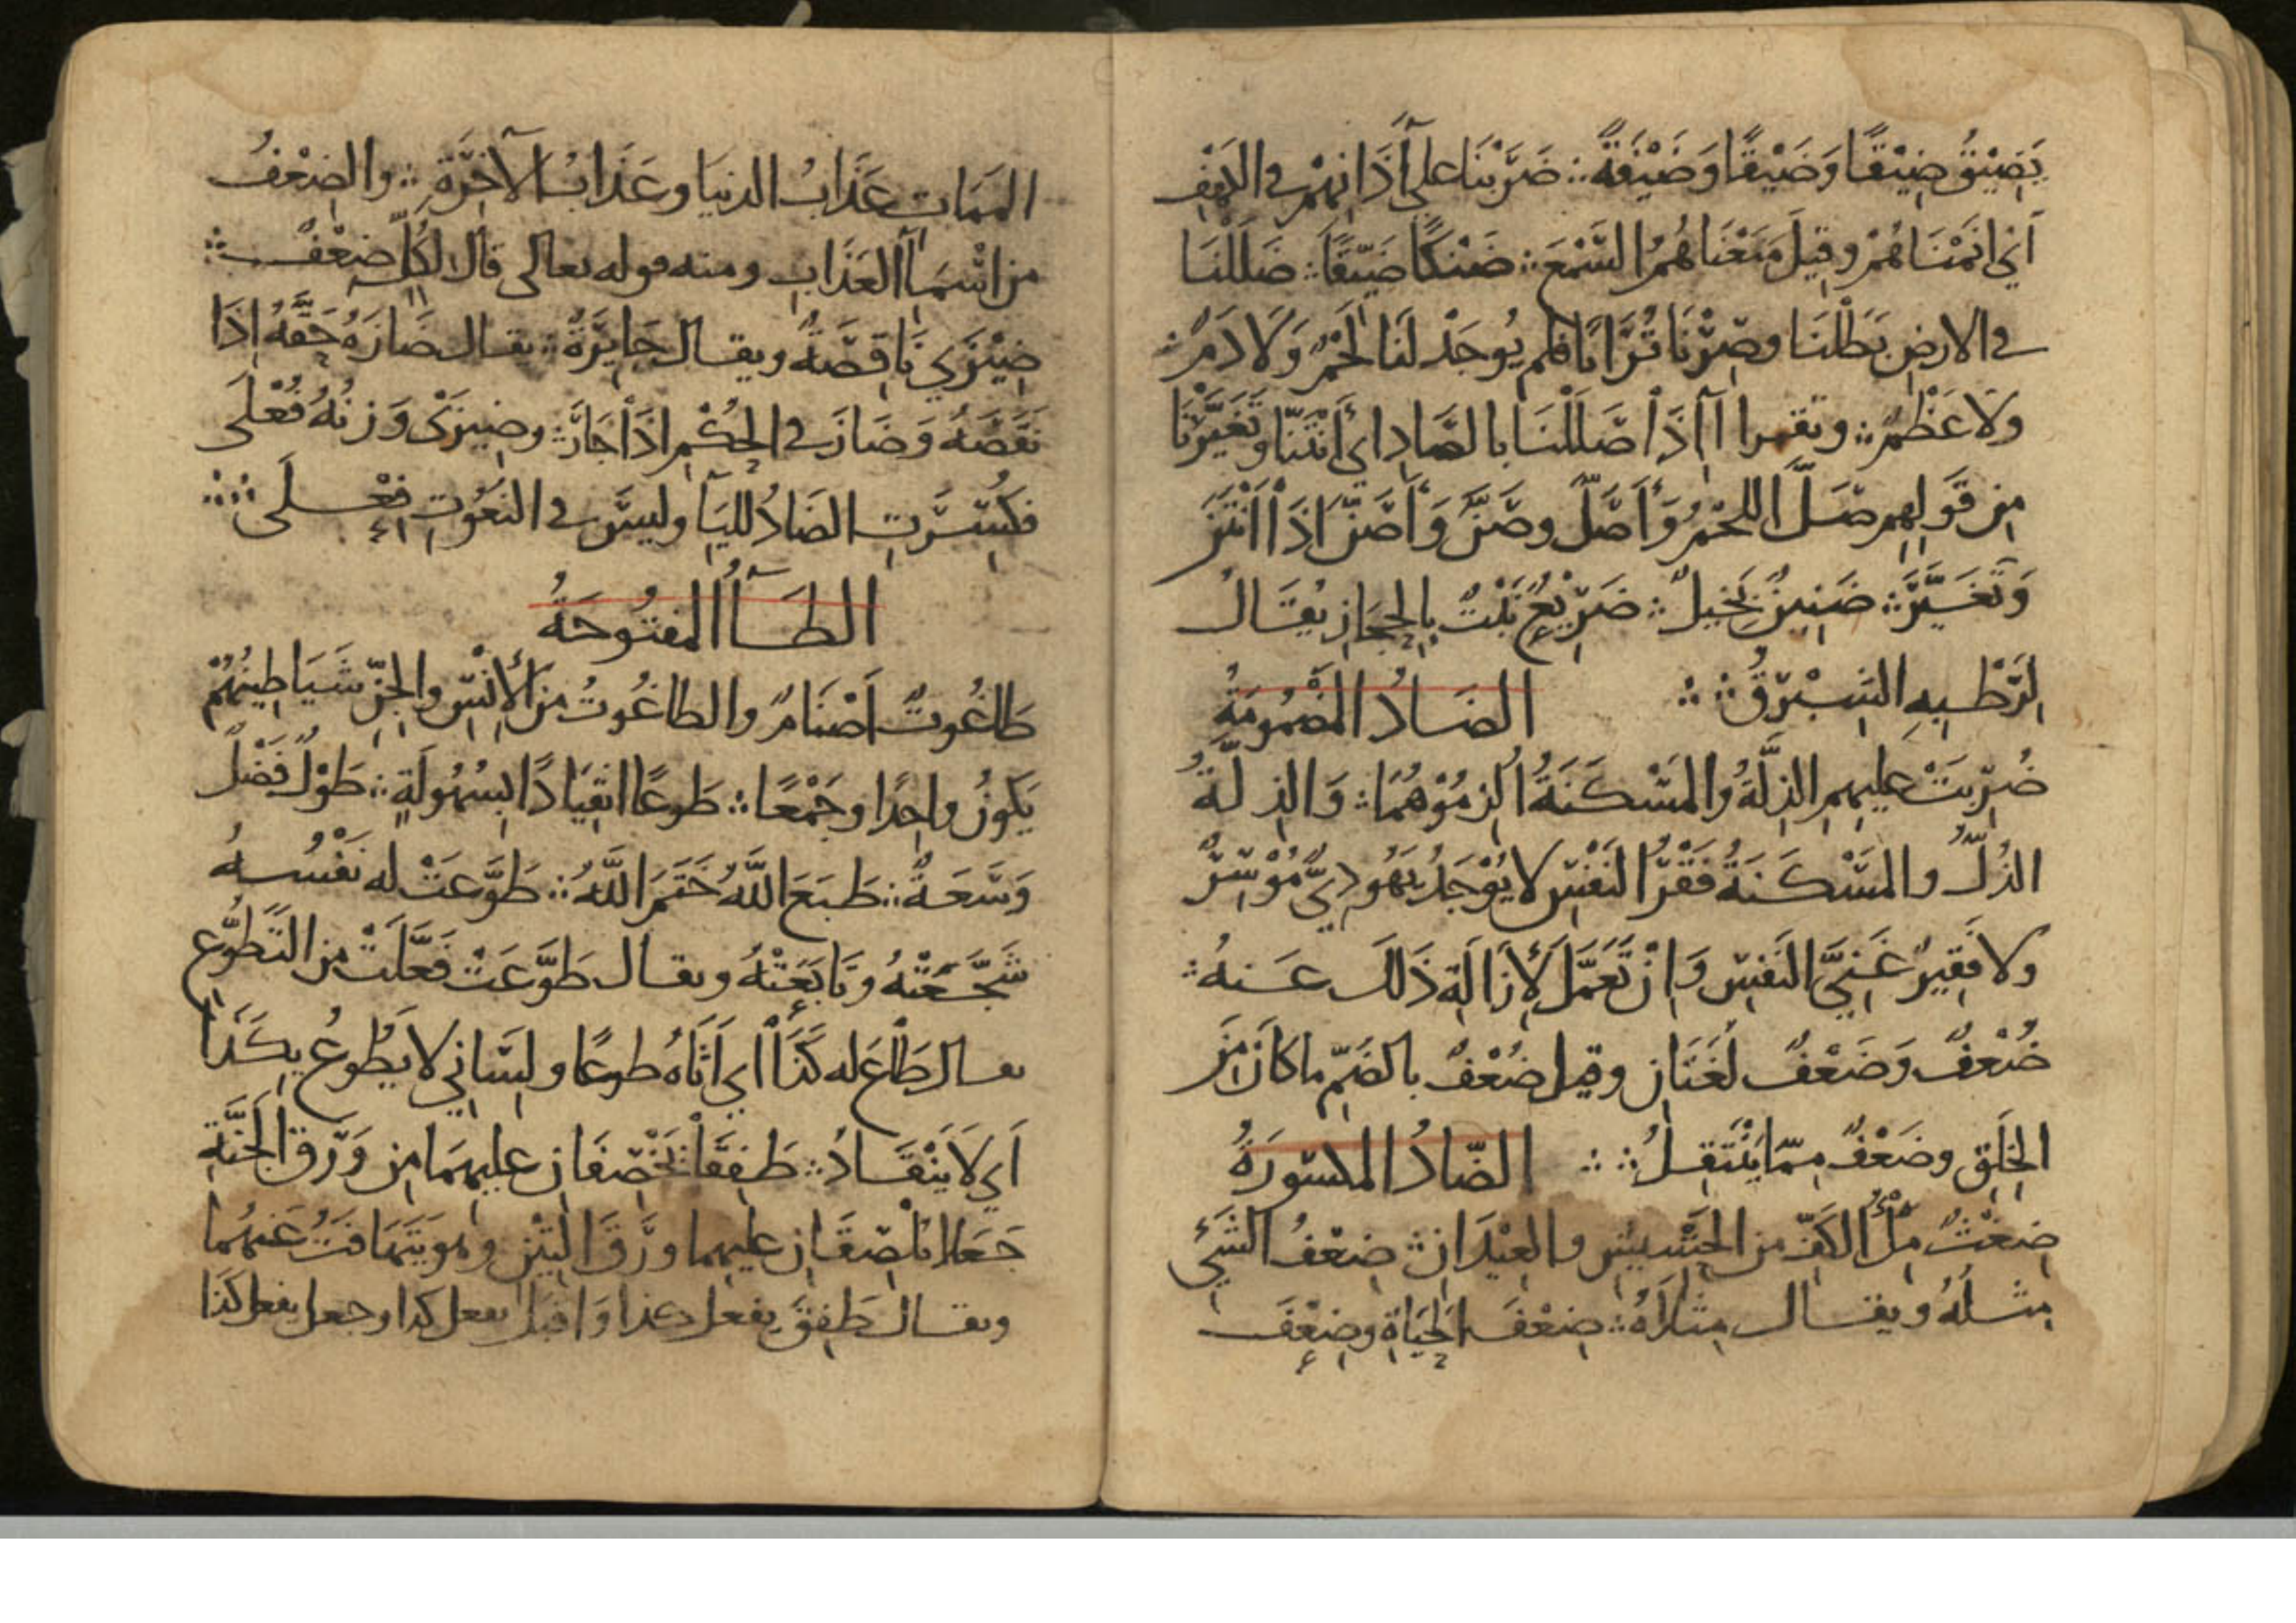 يَضِيْقُ ضِيْقًا وَضَيْقًا وَضَيْقَةً ضَرَبْنَا علي آذَانِهِمْ في الكهف
أَيْ أنَمْنَاهُمْ وقِيلَ مَنَعْنَاهُمُ السَّمْعَ ضَنْكًا ضَيّقًا ضَلَلْنَا
في الارضِ بَطَلْنَا وصِرْنَا تُرَابًا فلم يُوجَدْ لَنَا لَحْمٌ وَلَا دَمٌ
ولا عَظْمٌ ويقرا أإذَا صَلَلْنَا بالصَّادِ اي أَنْتَنَّا وتَغَيَّرْنَا
مِن قَوْلِهِم صَلَّ اللحْمُ وَأَصَلَّ وصَنَّ وَأَصَنَّ اذَا انْتَنَ
وَتَغَيَّرَ ضَنِينٌ بَخِيلٌ ضَرِيْعٌ نَبْتٌ بِالحِجَازِ يُقَالُ
لِرَطْبِهِ الشِبْرِقُ الضَادُ المَضْمُومَةُ
ضُرِبَتْ عليهِمِ الذِلَّةُ والمَسْكَنَةُ أُلزِمُوْهُمَا وَالذِلَّةُ
الذُلُّ والمَسْكَنَةُ فَقْرُ النَفْسِ لا يُوْجَدُ يَهُودِيٌّ مُوْسِرٌ
ولا فَقِيرٌ غَنِيَّ النَفْسِ وَإِنْ تَعَمَّلَ لِإزَالَةِ ذَلكَ عَنهُ
ضُعْفٌ وَضَعْفٌ لُغَتَانِ وقيل ضُعْفٌ بالضَمِّ ما كانَ مِنَ
الخَلْقِ وضَعْفٌ مِمّا يَنْتَقِلُ الضّادُ المكسورَةُ
ضِغْثٌ مِلْءُ الكَفِّ من الحَشِيشِ والعِيْدَانِ ضِعْفُ الشَيْءِ
مِثلُهُ ويقال مِثلَاهُ ضِعْفَ الحَيَاةِ وضِعْفَ
المَمَاتِ عَذَابُ الدنيَا وعَذَابُ الآخِرَةِ والضِعْفُ
من اسْمَاءِ العَذَابِ ومنه قوله تعالي قالَ لِكُلٍّ ضِعْفٌ
ضِيْزَي نَاقِصَةٌ ويقال جَايِرَةٌ يقال ضَازَهُ حَقَّهُ إذَا
نَقَصَهُ وَضَازَ في الحُكْمِ اذَا جَارَ وضِيزَى وَزنُهُ فُعْلَى
فكُسِرَتِ الضَادُ لليَآءِ وليسَ في النعُوتِ فِعْلَى
الطَآءُ المفتُوحَةُ
طَاغُوتٌ أَصْنَامٌ والطاغُوتُ مِنَ الإِنْسِ والجِنِّ شَيَاطِينُهُمْ
يَكونُ واحِدًا وجَمْعًا طَوعًا انقِيَادًا بِسُهُولَةٍ طَوْلٌ فَضْلٌ
وَسَعَةٌ طَبَعَ اللَّهُ خَتَمَ اللَّهُ طَوَّعَتْ له نَفْسُهُ
شَجَّعَتْهُ وتَابَعَتْهُ ويقال طَوَّعَتْ فَعَّلَتْ من التَطَوُّعِ
يقال طَاعَ له كَذَا أي أَتَاهُ طوعًا ولِسَاني لا يَطُوعُ بِكَذَا
أَي لَا يَنْقَادُ طَفِقَا يَخْصِفَانِ عليهِمَا مِن وَرَقِ الجَنَّةِ
جَعَلا يُلْصِقَانِ عليهما وَرَقَ التِيْنِ وهو يَتَهَافَتُ عَنهُمَا
ويقال طَفِقَ يفعل كذا وَاقبَلَ يفعل كذا وجعل يفعل كَذَا